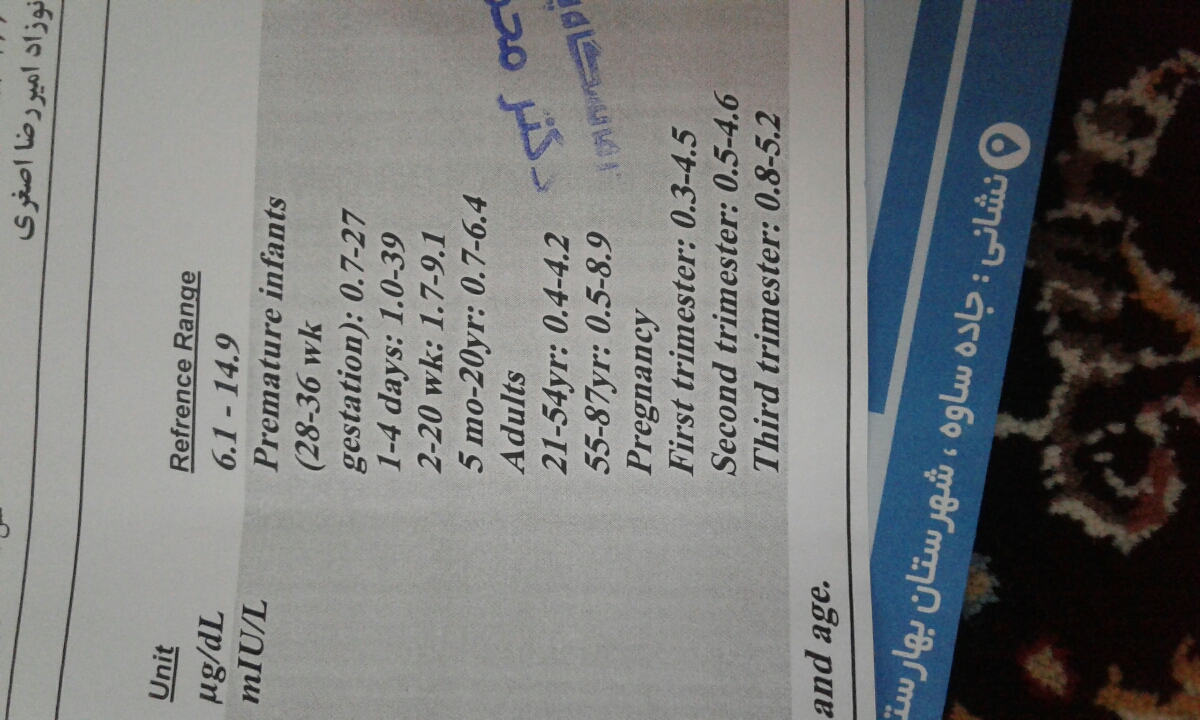 نوزاد امیررضا اصغری
Unit Refrence Range
µg/dL 6.1 - 14.9
mIU/L Premature infants
(28-36 wk
gestation): 0.7-27
1-4 days: 1.0-39
2-20 wk: 1.7-9.1
5 mo-20yr: 0.7-6.4
Adults
21-54yr: 0.4-4.2
55-87yr: 0.5-8.9
Pregnancy
First trimester: 0.3-4.5
Second trimester: 0.5-4.6
Third trimester: 0.8-5.2
دکتر
and age.
نشانی : جاده ساوه ، شهرستان بهارست